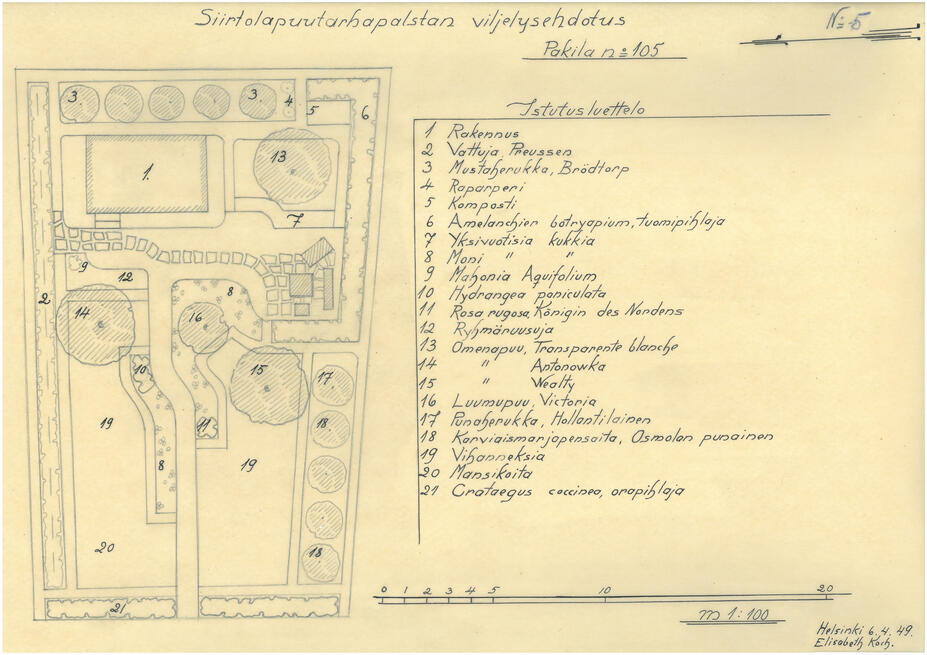 Siirtolapuutarhapalstan viljelysehdotus
No 5
Pakila no 105
Istutusluettelo
1 Rakennus
2 Vattuja, Preussen
3 Mustaherukka, Brödtorp
4 Raparperi
5 Komposti
6 Amelanchier botryapium, tuomipihlaja
7 Yksivuotisia kukkia
8 Moni " "
9 Mahonia Aquifolium
10 Hydrangea paniculata
11 Rosa rugosa, Königin des Nordens
12 Ryhmäruusuja
13 Omenapuu, Transparente blanche
14 " Antonowka
15 " Wealty
16 Luumupuu, Victoria
17 Punaherukka, Hollantilainen
18 Karviaismarjapensaita, Osmolan punainen
19 Vihanneksia
20 Mansikoita
21 Crataegus coccinea, orapihlaja
3 3 4 5 6
1. 13
7
9 12
2 8
14 16
10 15 17
19 11 18
8 19
20 18
21
0 1 2 3 4 5 10 20
m 1:100
Helsinki 6.4.49.
Elisabeth Koch.